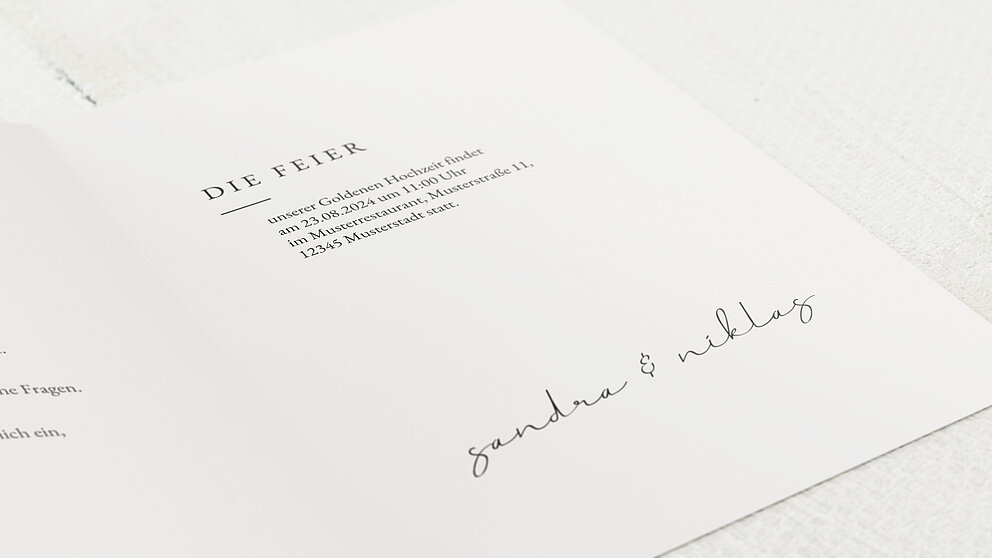 DIE FEIER
unserer Goldenen Hochzeit findet
am 23.08.2024 um 11:00 Uhr
im Musterrestaurant, Musterstraße 11,
12345 Musterstadt statt.
sandra & niklas
Fragen.
ein,